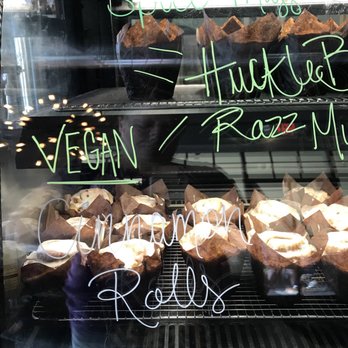 HuckleB
VEGAN / Razz Mu
Cinnamon
Rolls